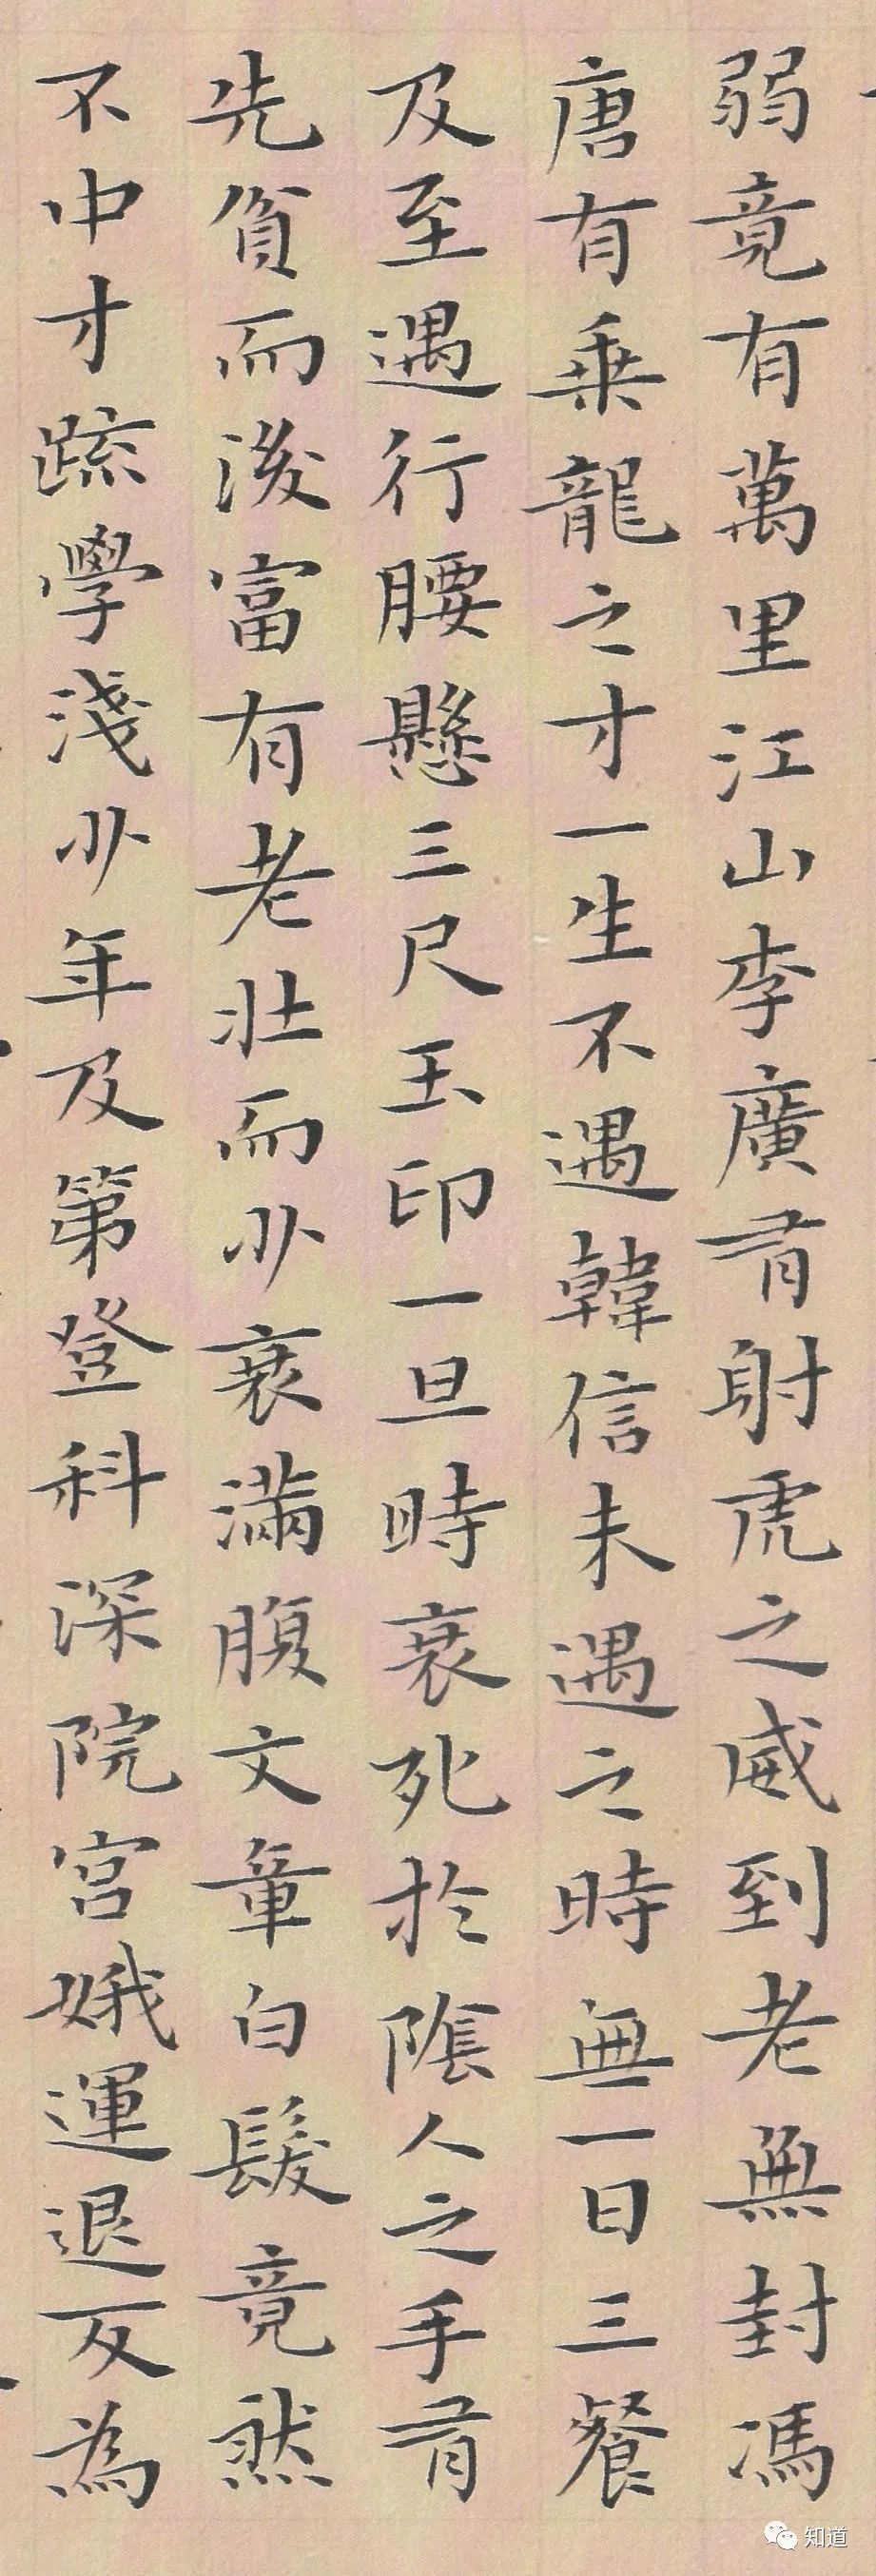 弱竟有萬里江山李廣有射虎之威到老無封馮
唐有乗龍之才一生不遇韓信未遇之時無一日三餐
及至遇行腰懸三尺玉印一旦時衰死於陰人之手有
先貧而後富有老壯而少衰滿腹文章白髮竟然
不中才疏學淺少年及第登科深院宫娥運退反為
知道